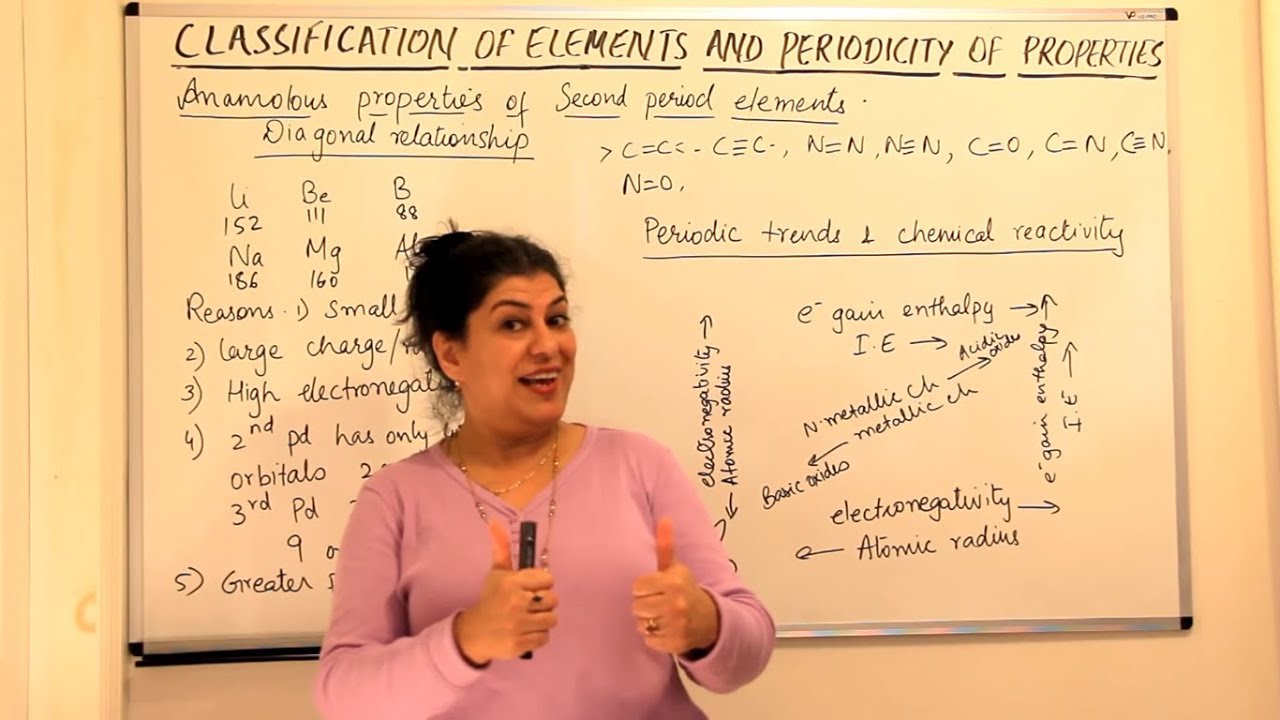 CLASSIFICATION OF ELEMENTS AND PERIODICITY OF PROPERTIES
Anamolous properties of Second period elements.
Diagonal relationship
>C=C< -C≡C-, N=N, N≡N, C=O, C=N, C≡N,
N=O,
Li Be B
152 111 88
Na Mg Al
186 160 1
Reasons. 1) Small
2) large charge/
3) High electronegati
4) 2nd pd has only
orbitals 2
3rd Pd
9
5) Greater
Periodic trends & chemical reactivity
e⁻ gain enthalpy →
I.E →
Acidic oxides
N.metallic ch
metallic ch
Basic oxides
electronegativity →
← Atomic radius
electronegativity →
← Atomic radius
e⁻ gain enthalpy →
I.E →